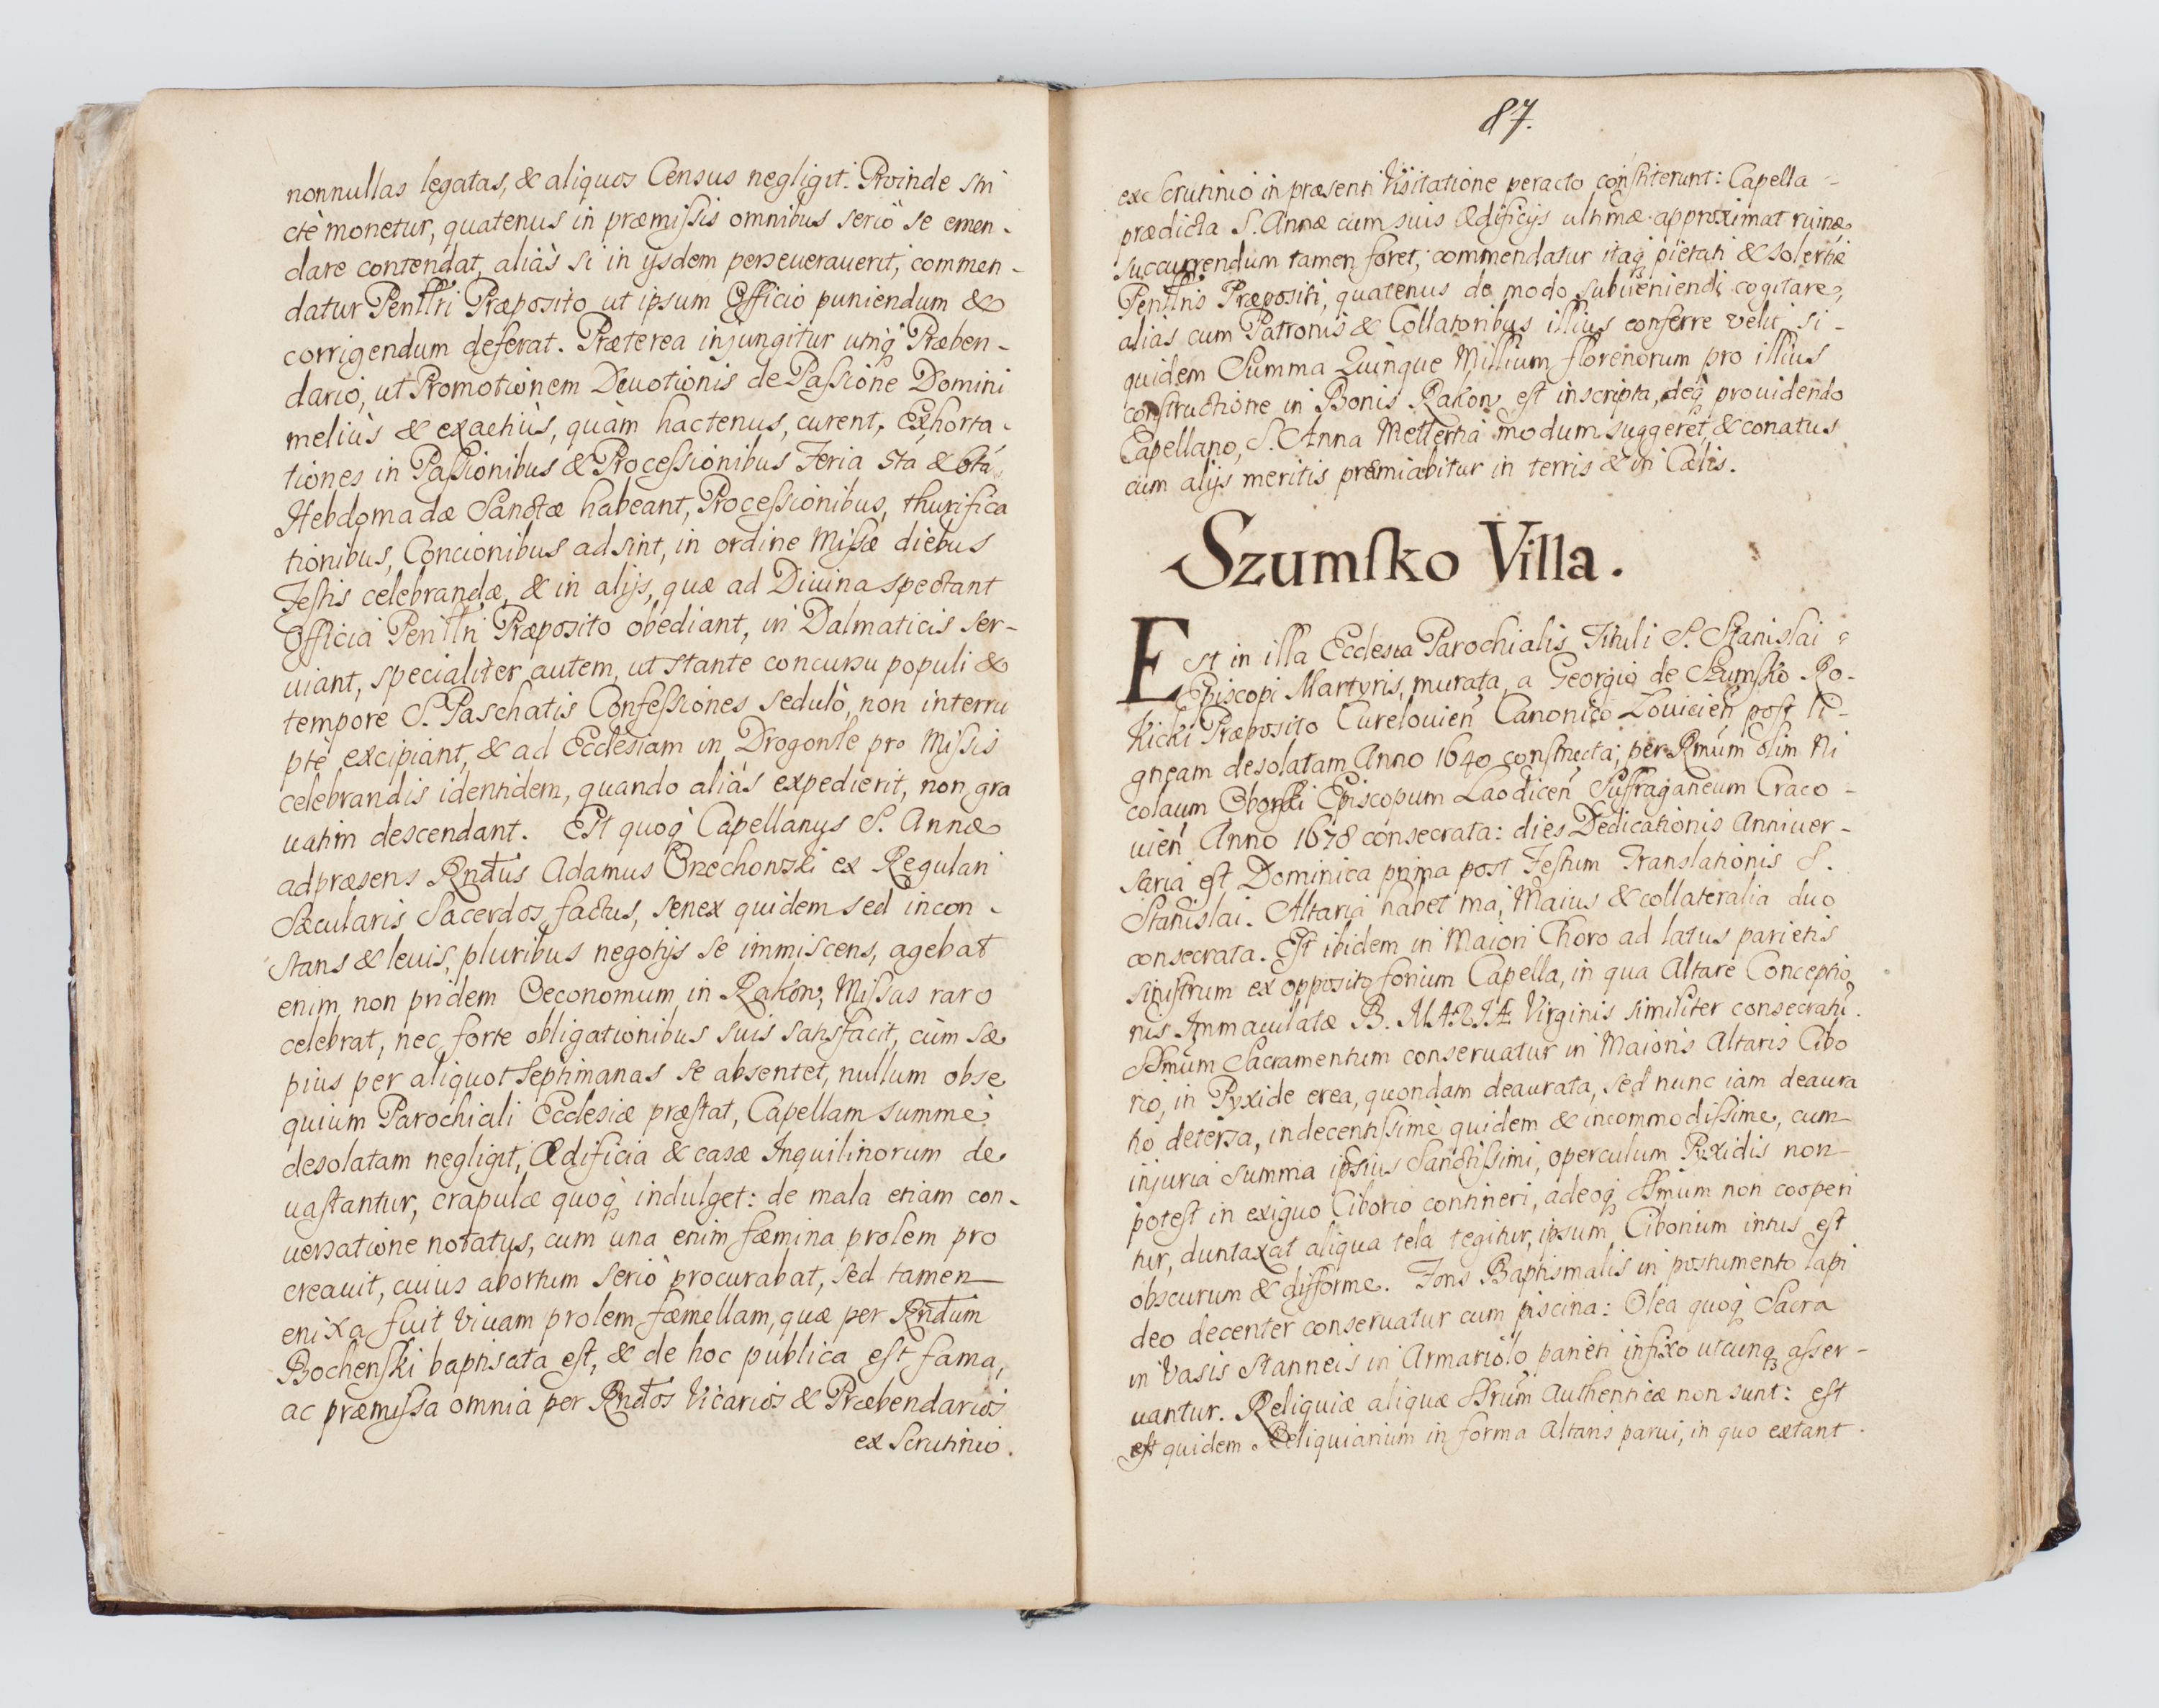 nonnullas legatas, & aliquos Census negligit. Proinde stri
ctè monetur, quatenus in præmissis omnibus seriò se emen-
dare contendat, aliàs si in ijsdem perseuerauerit, commen-
datur Præposito ut ipsum Officio puniendum &
corrigendum deferat. Præterea injungitur utriq Præben-
dario, ut Promotionem Deuotionis de Passione Domini
meliùs & exactiùs, quàm hactenus, curent, Exhorta-
tiones in Passionibus & Processionibus Feria 5ta & 6ta
Hebdomadæ Sanctæ habeant, Processionibus, thurifica
tionibus, Concionibus adsint, in ordine Missæ diebus
Festis celebrandæ, & in alijs, quæ ad Diuina spectant
Officia Præposito obediant, in Dalmaticis ser-
uiant, specialiter autem, ut stante concursu populi &
tempore S. Paschatis Confessiones sedulò, non interru
ptè excipiant, & ad Ecclesiam in Drogonle pro Missis
celebrandis identidem, quando aliàs expedierit, non gra
uatim descendant. Est quoq Capellanus S. Annæ
adpræsens Rndus Adamus Orzechowski ex Regulari
Sæcularis Sacerdos factus, senex quidem sed incon-
stans & leuis, pluribus negotijs se immiscens, agebat
enim non pridem Oeconomum in Rakow, Missas raro
celebrat, nec forte obligationibus suis satisfacit, cùm sæ
pius per aliquot septimanas se absentet, nullum obse
quium Parochiali Ecclesiæ præstat, Capellam summè
desolatam negligit, Ædificia & casæ Inquilinorum de
uastantur, crapulæ quoq indulget: de mala etiam con-
uersatione notatus, cum una enim fæmina prolem pro
creauit, cuius abortum seriò procurabat, sed tamen
enixa fuit viuam prolem fæmellam, quæ per Rndum
Bochenski baptisata est, & de hoc publica est fama,
ac præmissa omnia per Rndos Vicarios & Præbendarios
ex Scrutinio.
87.
ex Scrutinio in præsenti Visitatione peracto constiterunt: Capella
prædicta S. Annæ cum suis Ædificijs ultimæ approximat ruinæ
succurrendum tamen foret; commendatur itaq pietati & solertiæ
Præpositi, quatenus de modo subueniendi cogitare,
alias cum Patronis & Collatoribus illius conferre velit si-
quidem Summa Quinque Millium florenorum pro illius
constructione in Bonis Rakow est inscripta, deq prouidendo
Capellano, S. Anna Mettertia modum suggeret, & conatus
cum alijs meritis præmiabitur in terris & in Cælis.
Szumsko Villa.
Est in illa Ecclesia Parochialis Tituli S. Stanislai
Episcopi Martyris, murata, a Georgio de Szumsko Ro-
kicki Præposito Curelouień Canonico Louicień post li-
gneam desolatam Anno 1640 constructa; per Rmum olim Ni
colaum Oborski Episcopum Laodiceń Suffraganeum Craco-
uień Anno 1678 consecrata: dies Dedicationis Anniuer-
saria est Dominica prima post Festum Translationis S.
Stanislai. Altaria habet tria, Maius & collateralia duo
consecrata. Est ibidem in Maiori Choro ad latus parietis
sinistrum ex opposito forium Capella, in qua Altare Conceptio
nis Immaculatæ B. MARIÆ Virginis similiter consecratū.
SSmum Sacramentum conseruatur in Maioris Altaris Cibo
rio, in Pyxide erea, quondam deaurata, sed nunc iam deaura
tio detersa, indecentissimè quidem & incommodissime, cum
injuria summa ipsius Sanctissimi, operculum Pyxidis non
potest in exiguo Ciborio contineri, adeoq SSmum non cooperi
tur, duntaxat aliqua tela tegitur, ipsum Ciborium intus est
obscurum & difforme. Fons Baptismalis in postumento lapi
deo decenter conseruatur cum piscina: Olea quoq Sacra
in Vasis stanneis in Armariolo parieti infixo utcunq asser-
uantur. Reliquiæ aliquæ SSrum Authenticæ non sunt: est
est quidem Reliquiarium in forma Altaris parui, in quo extant